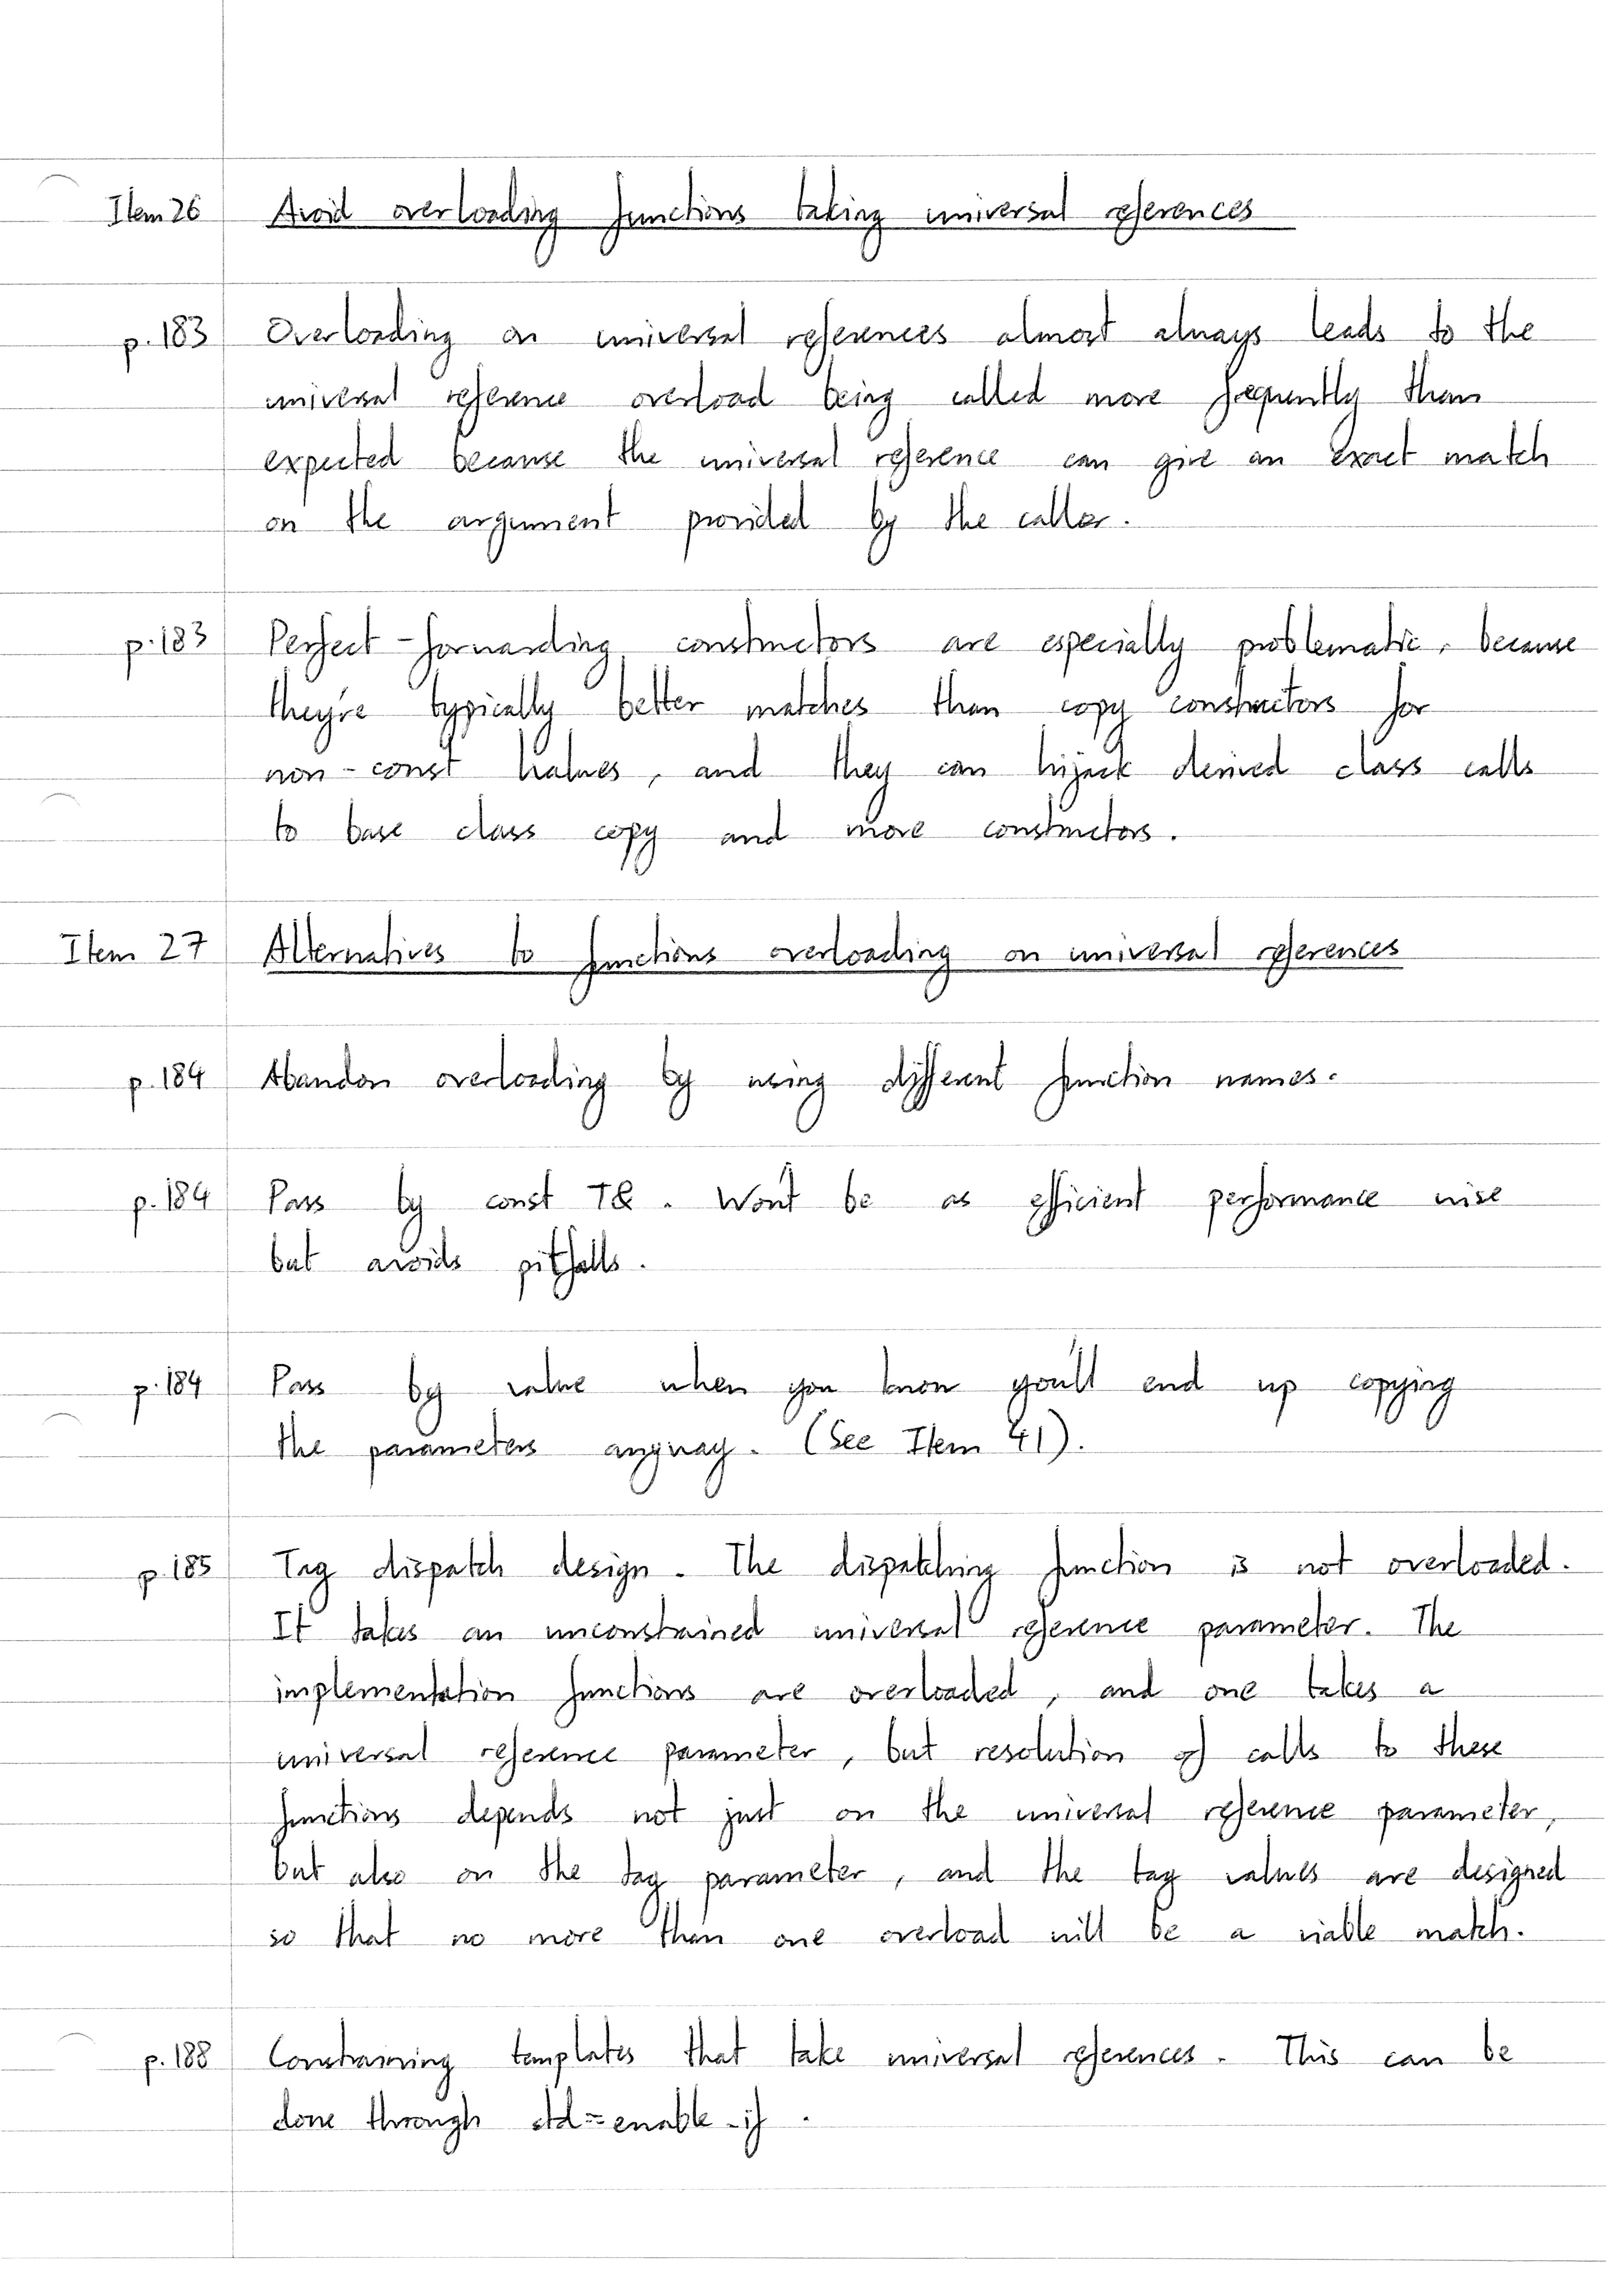 Item 26 Avoid overloading functions taking universal references
p. 183 Overloading on universal references almost always leads to the
universal reference overload being called more frequently than
expected because the universal reference can give an exact match
on the argument provided by the caller.
p. 183 Perfect-forwarding constructors are especially problematic, because
they're typically better matches than copy constructors for
non-const lvalues, and they can hijack derived class calls
to base class copy and move constructors.
Item 27 Alternatives to functions overloading on universal references
p. 184 Abandon overloading by using different function names.
p. 184 Pass by const T&. Won't be as efficient performance wise
but avoids pitfalls.
p. 184 Pass by value when you know you'll end up copying
the parameters anyway. (See Item 41).
p. 185 Tag dispatch design. The dispatching function is not overloaded.
It takes an unconstrained universal reference parameter. The
implementation functions are overloaded, and one takes a
universal reference parameter, but resolution of calls to these
functions depends not just on the universal reference parameter,
but also on the tag parameter, and the tag values are designed
so that no more than one overload will be a viable match.
p. 188 Constraining templates that take universal references. This can be
done through std::enable_if.